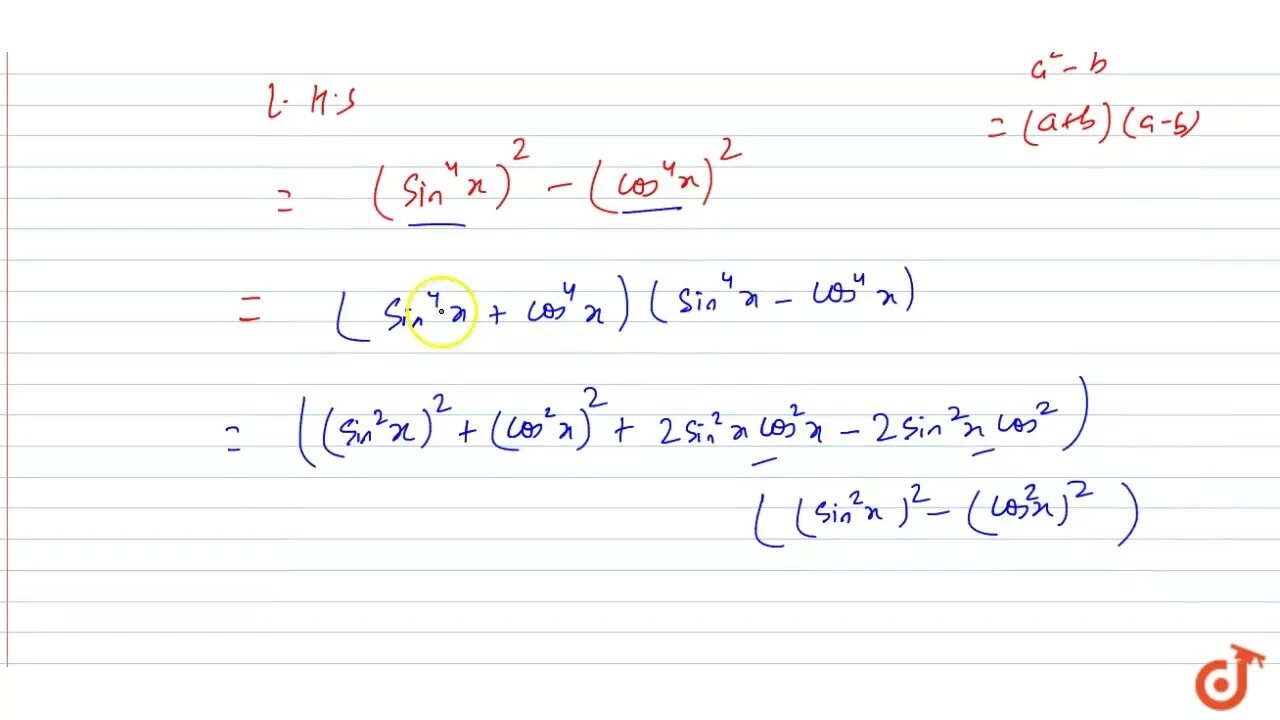 a² - b
L.H.S
= (a+b) (a-b)
= (sin⁴x)² - (cos⁴x)²
= (sin⁴x + cos⁴x) (sin⁴x - cos⁴x)
= ((sin²x)² + (cos²x)² + 2sin²x cos²x - 2sin²x cos²)
((sin²x)² - (cos²x)²)